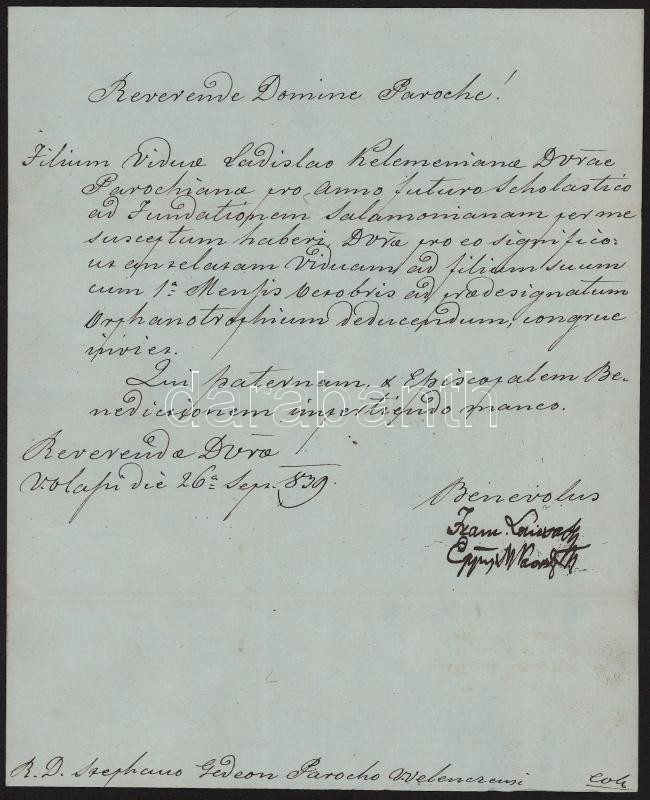 Reverende Domine Paroche!
Filium Viduæ Ladislao Kelemenianæ Dvr̃ae
Parochianæ pro Anno futuro Scholastico
ad Fundationem Salamonianam per me
susceptum haberi Dvr̃æ pro eo significo:
ut antelatam Viduam ad filium suum
cum 1ª Mensis Octobris ad prædesignatum
Orphanotrophium deducendum, congrue
inviet.
Qui paternam & Episcopalem Be-
nedictionem impertiendo maneo.
darabanth
Reverendæ Dvr̃æ
die 26ª Sept. 839.
Benevolus
R. D. Stephano Gedeon Parocho Velenczensi